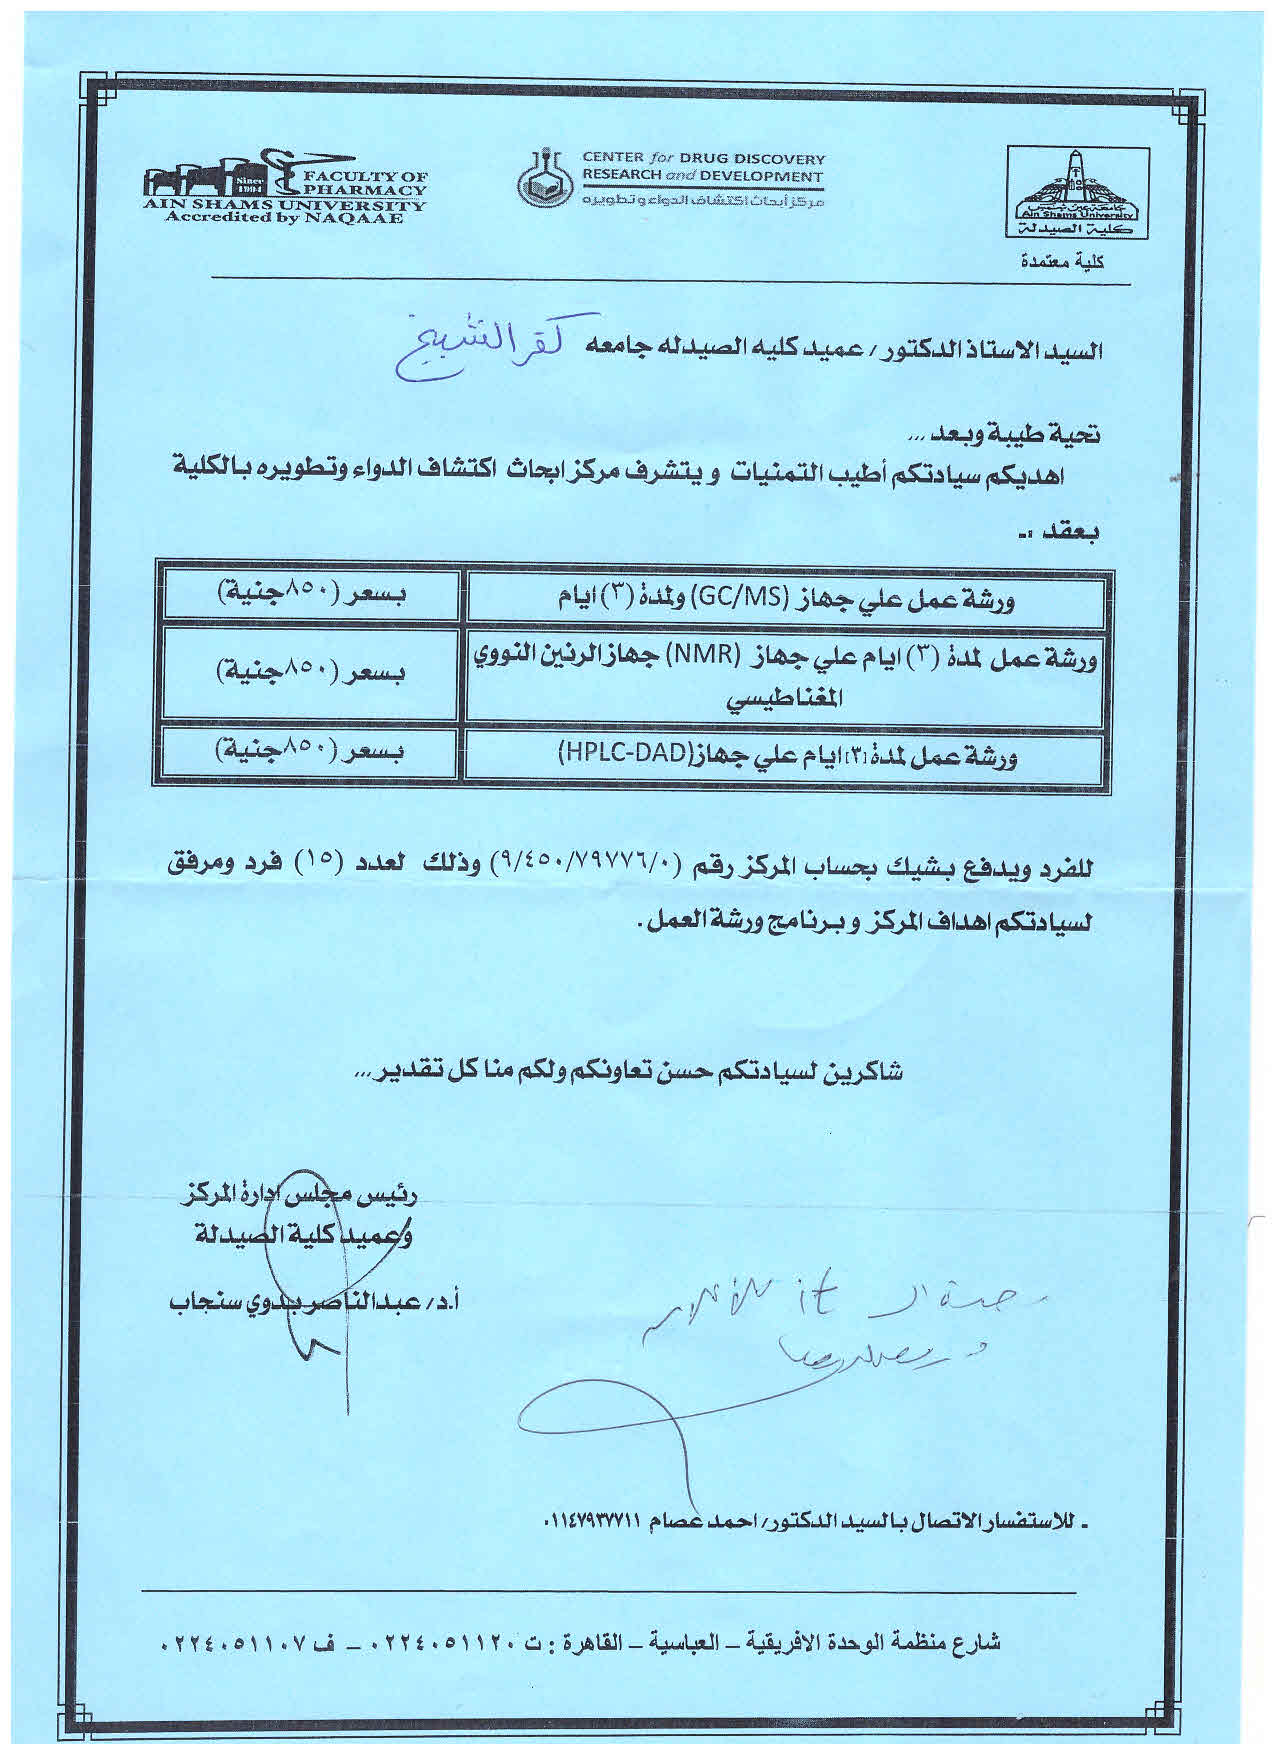 Since 1994
FACULTY OF
PHARMACY
AIN SHAMS UNIVERSITY
Accredited by NAQAAE
CENTER for DRUG DISCOVERY
RESEARCH and DEVELOPMENT
مركز أبحاث اكتشاف الدواء و تطويره
جامعة عين شمس
Ain Shams University
كلية الصيدلة
كلية معتمدة
السيد الاستاذ الدكتور / عميد كليه الصيدله جامعه كفر الشيخ
تحية طيبة وبعد ...
اهديكم سيادتكم أطيب التمنيات و يتشرف مركز ابحاث اكتشاف الدواء وتطويره بالكلية
بعقد :-
ورشة عمل علي جهاز (GC/MS) ولمدة (٣) ايام بسعر (٨٥٠جنية)
ورشة عمل لمدة (٣) ايام علي جهاز (NMR) جهاز الرنين النووي
المغناطيسي بسعر (٨٥٠جنية)
ورشة عمل لمدة (٣) ايام علي جهاز(HPLC-DAD) بسعر (٨٥٠جنية)
للفرد ويدفع بشيك بحساب المركز رقم (٩/٤٥٠/٧٩٧٧٦/٠) وذلك لعدد (١٥) فرد ومرفق
لسيادتكم اهداف المركز و برنامج ورشة العمل .
شاكرين لسيادتكم حسن تعاونكم ولكم منا كل تقدير ...
رئيس مجلس ادارة المركز
وعميد كلية الصيدلة
أ.د/ عبدالناصر بدوي سنجاب
وحدة الـ it
- للاستفسار الاتصال بالسيد الدكتور/ احمد عصام ٠١١٤٧٩٣٧٧١١
شارع منظمة الوحدة الافريقية – العباسية – القاهرة : ت ٠٢٢٤٠٥١١٢٠ – ف ٠٢٢٤٠٥١١٠٧